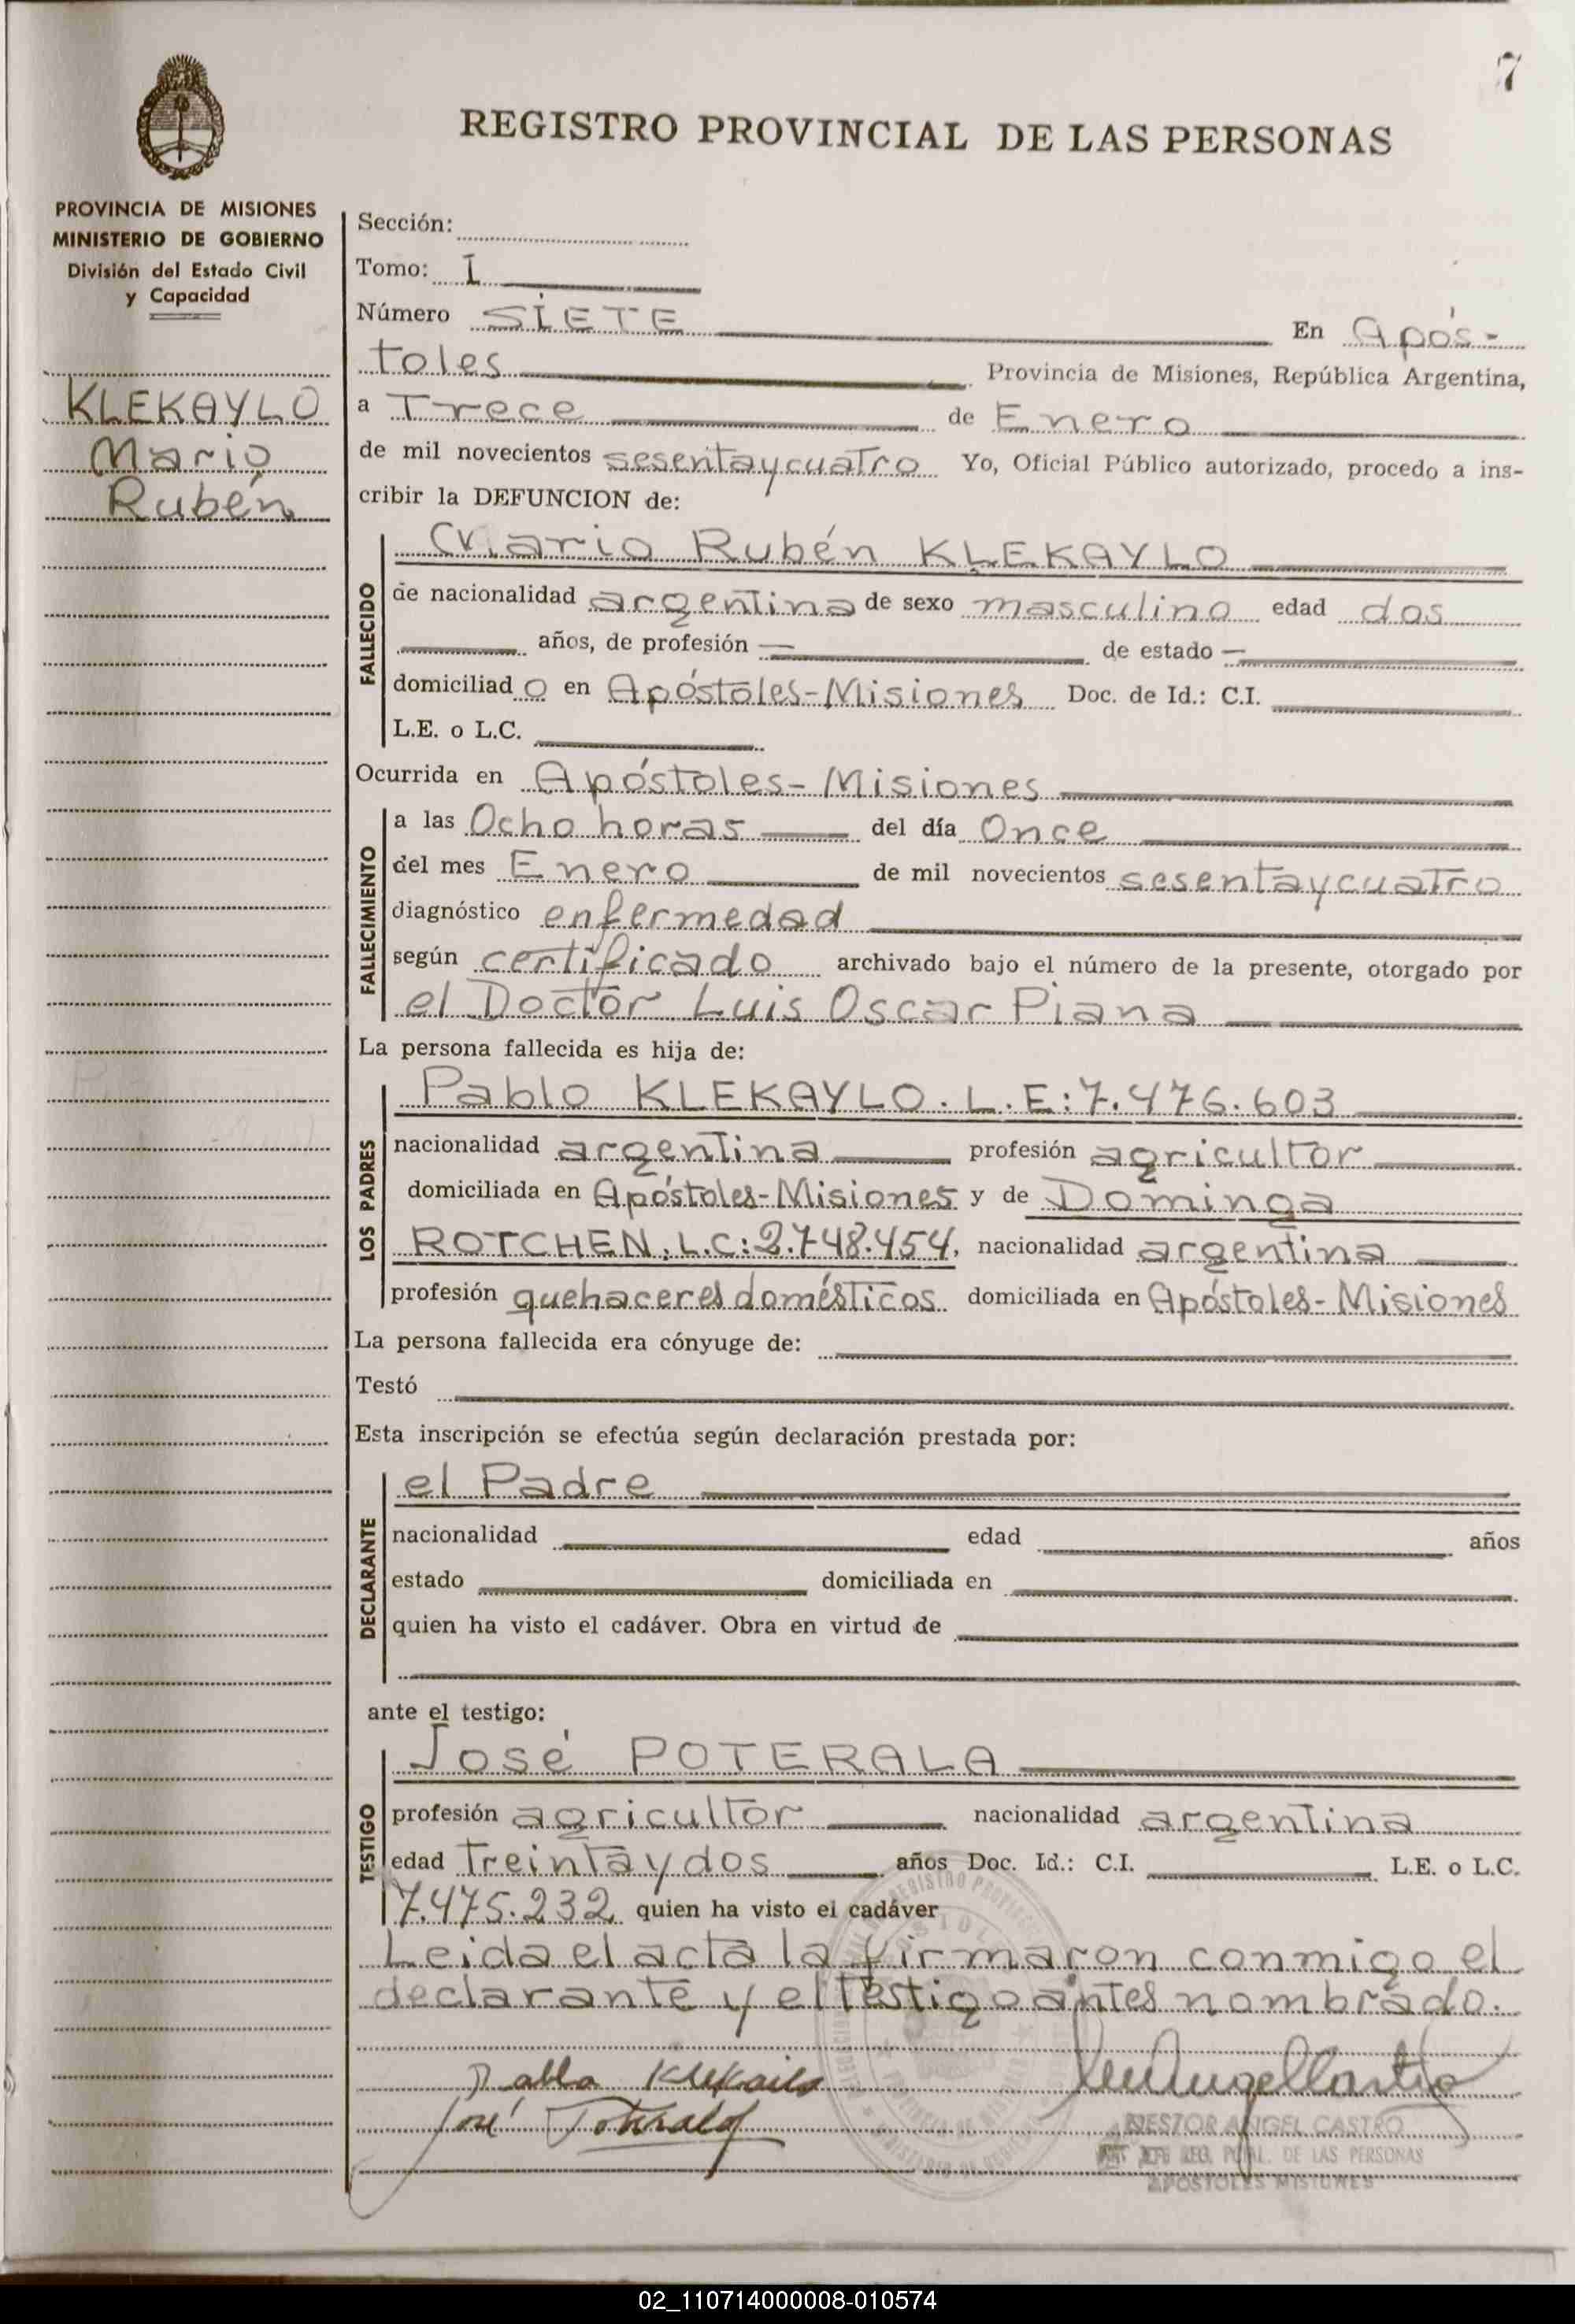 7
REGISTRO PROVINCIAL DE LAS PERSONAS
PROVINCIA DE MISIONES
MINISTERIO DE GOBIERNO
División del Estado Civil
y Capacidad
KLEKAYLO
Mario
Rubén
Sección:
Tomo: I
Número SIETE En Após-
toles Provincia de Misiones, República Argentina,
a Trece de Enero
de mil novecientos sesentaycuatro Yo, Oficial Público autorizado, procedo a ins-
cribir la DEFUNCION de:
FALLECIDO
Mario Rubén KLEKAYLO
de nacionalidad argentina de sexo masculino edad dos
años, de profesión — de estado —
domiciliad o en Apóstoles-Misiones Doc. de Id.: C.I.
L.E. o L.C.
Ocurrida en Apóstoles-Misiones
FALLECIMIENTO
a las Ocho horas del día Once
del mes Enero de mil novecientos sesentaycuatro
diagnóstico enfermedad
según certificado archivado bajo el número de la presente, otorgado por
el Doctor Luis Oscar Piana
La persona fallecida es hija de:
LOS PADRES
Pablo KLEKAYLO. L.E: 7.476.603
nacionalidad argentina profesión agricultor
domiciliada en Apóstoles-Misiones y de Dominga
ROTCHEN, L.C: 2.748.454, nacionalidad argentina
profesión quehaceres domésticos domiciliada en Apóstoles-Misiones
La persona fallecida era cónyuge de:
Testó
Esta inscripción se efectúa según declaración prestada por:
DECLARANTE
el Padre
nacionalidad edad años
estado domiciliada en
quien ha visto el cadáver. Obra en virtud de
ante el testigo:
TESTIGO
José POTERALA
profesión agricultor nacionalidad argentina
edad Treintaydos años Doc. Id.: C.I. L.E. o L.C.
7.475.232 quien ha visto el cadáver
Leida el acta la firmaron conmigo el
declarante y el testigo antes nombrado.
Pablo Klekailo
José Poterala
NESTOR ANGEL CASTRO
JEFE REG. PCIAL. DE LAS PERSONAS
APOSTOLES MISIONES
02_110714000008-010574